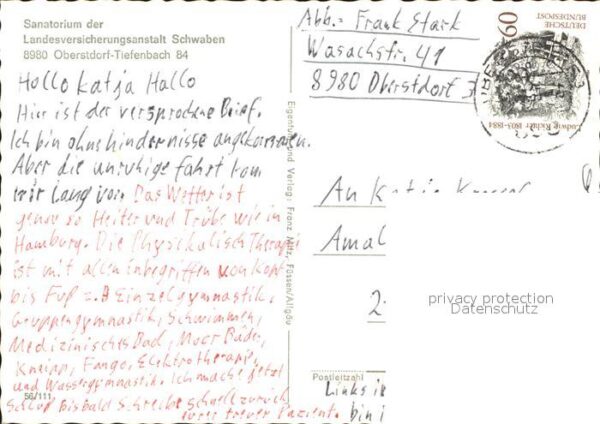 Sanatorium der
Landesversicherungsanstalt Schwaben
8980 Oberstdorf-Tiefenbach 84
Hollo Katja Hallo
Hier ist der versprochene Brief.
Ich bin ohne hindernisse angekommen.
Aber die unruhige fahrt kam
mir lang vor. Das Wetter ist
genau so Heiter und Trübe wie in
Hamburg. Die Physikalisch Therapie
ist mit allen inbegriffen von Kopf
bis Fuß z.B Einzelgymnastik,
Gruppengymnastik, Schwimmen,
Medizinisches Bad, Moor Bäder,
Kneipp, Fango, Elektrotherapie,
und Wassergymnastik. Ich mache jetzt
Schluß Bisbald Schreibe schnell zurück
eurer treuer Pazient.
56/111
Eigentum und Verlag: Franz Milz, Füssen/Allgäu
Abb.: Frank Stark
Wasachstr. 41
8980 Oberstdorf
60
DEUTSCHE
BUNDESPOST
Ludwig Richter 1803-1884
An Katja
Amal
2
privacy protection
Datenschutz
Postleitzahl
Links i
bin i